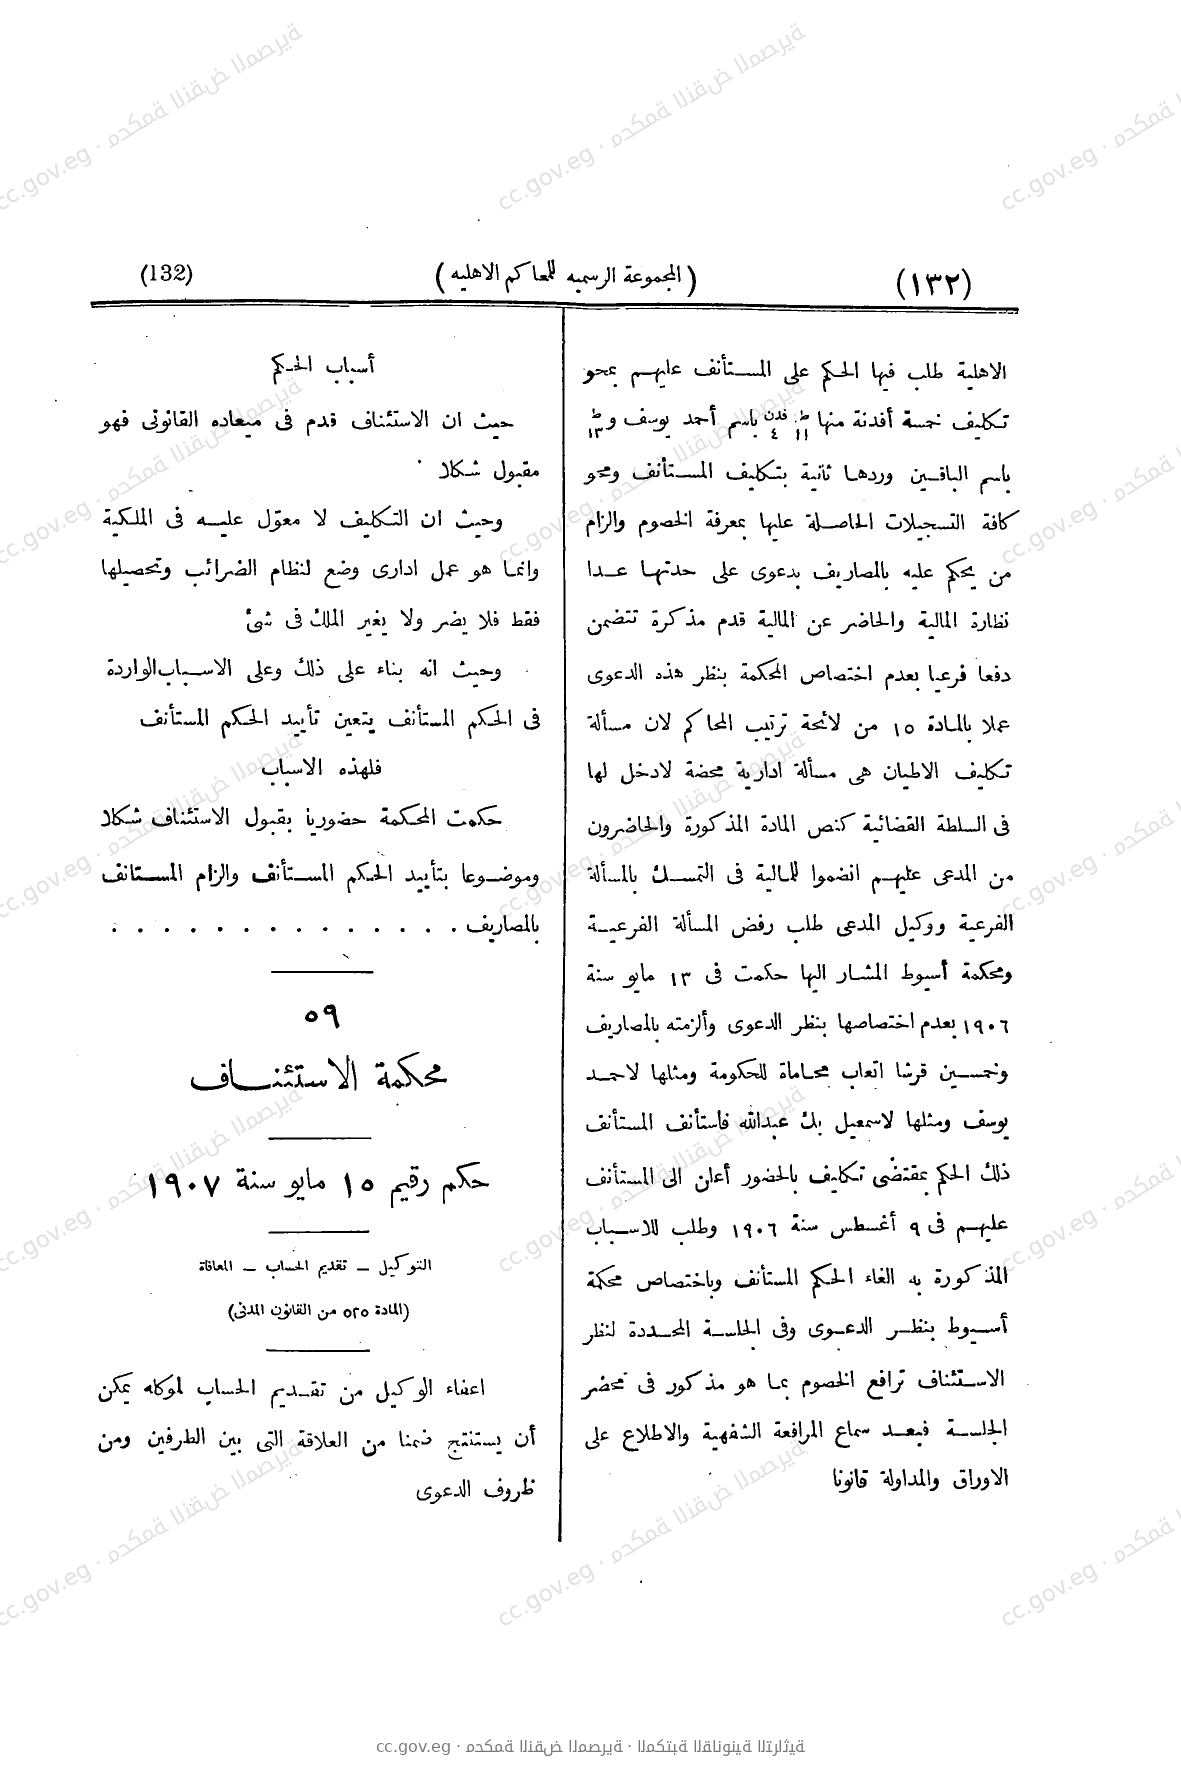 (١٣٢)
(المجموعة الرسميه للمحاكم الاهليه)
(132)
الاهلية طلب فيها الحكم على المستأنف عليهم بمحو
تكليف خمسة أفدنة منها ط ١١ فدن ٤ باسم أحمد يوسف و ط ١٣
باسم الباقين وردها ثانية بتكليف المستأنف ومحو
كافة التسجيلات الحاصلة عليها بمعرفة الخصوم والزام
من يحكم عليه بالمصاريف بدعوى على حدتها عدا
نظارة المالية والحاضر عن المالية قدم مذكرة تتضمن
دفعا فرعيا بعدم اختصاص المحكمة بنظر هذه الدعوى
عملا بالمادة ١٥ من لائحة ترتيب المحاكم لان مسألة
تكليف الاطيان هى مسألة ادارية محضة لادخل لها
فى السلطة القضائية كنص المادة المذكورة والحاضرون
من المدعى عليهم انضموا للمالية فى التمسك بالمسألة
الفرعية ووكيل المدعى طلب رفض المسألة الفرعية
ومحكمة أسيوط المشار اليها حكمت فى ١٣ مايو سنة
١٩٠٦ بعدم اختصاصها بنظر الدعوى وألزمته بالمصاريف
وخمسين قرشا اتعاب محاماة للحكومة ومثلها لاحمد
يوسف ومثلها لاسمعيل بك عبدالله فاستأنف المستأنف
ذلك الحكم بمقتضى تكليف بالحضور أعلن الى المستأنف
عليهم فى ٩ أغسطس سنة ١٩٠٦ وطلب للاسباب
المذكورة به الغاء الحكم المستأنف وباختصاص محكمة
أسيوط بنظر الدعوى وفى الجلسة المحددة لنظر
الاستئناف ترافع الخصوم بما هو مذكور فى محضر
الجلسة فبعد سماع المرافعة الشفهية والاطلاع على
الاوراق والمداولة قانونا
أسباب الحكم
حيث ان الاستئناف قدم فى ميعاده القانونى فهو
مقبول شكلا
وحيث ان التكليف لا معوّل عليه فى الملكية
وانما هو عمل ادارى وضع لنظام الضرائب وتحصيلها
فقط فلا يضر ولا يغير الملك فى شئ
وحيث انه بناء على ذلك وعلى الاسباب الواردة
فى الحكم المستأنف يتعين تأييد الحكم المستأنف
فلهذه الاسباب
حكمت المحكمة حضوريا بقبول الاستئناف شكلا
وموضوعا بتأييد الحكم المستأنف والزام المستانف
بالمصاريف . . . . . . . . . . . . . .
٥٩
محكمة الاستئناف
حكم رقيم ١٥ مايو سنة ١٩٠٧
التوكيل – تقديم الحساب – المعافاة
(المادة ٥٢٥ من القانون المدنى)
اعفاء الوكيل من تقديم الحساب لموكله يمكن
أن يستنتج ضمنا من العلاقة التى بين الطرفين ومن
ظروف الدعوى
cc.gov.eg · محكمة النقض المصرية · المكتبة القانونية التراثية